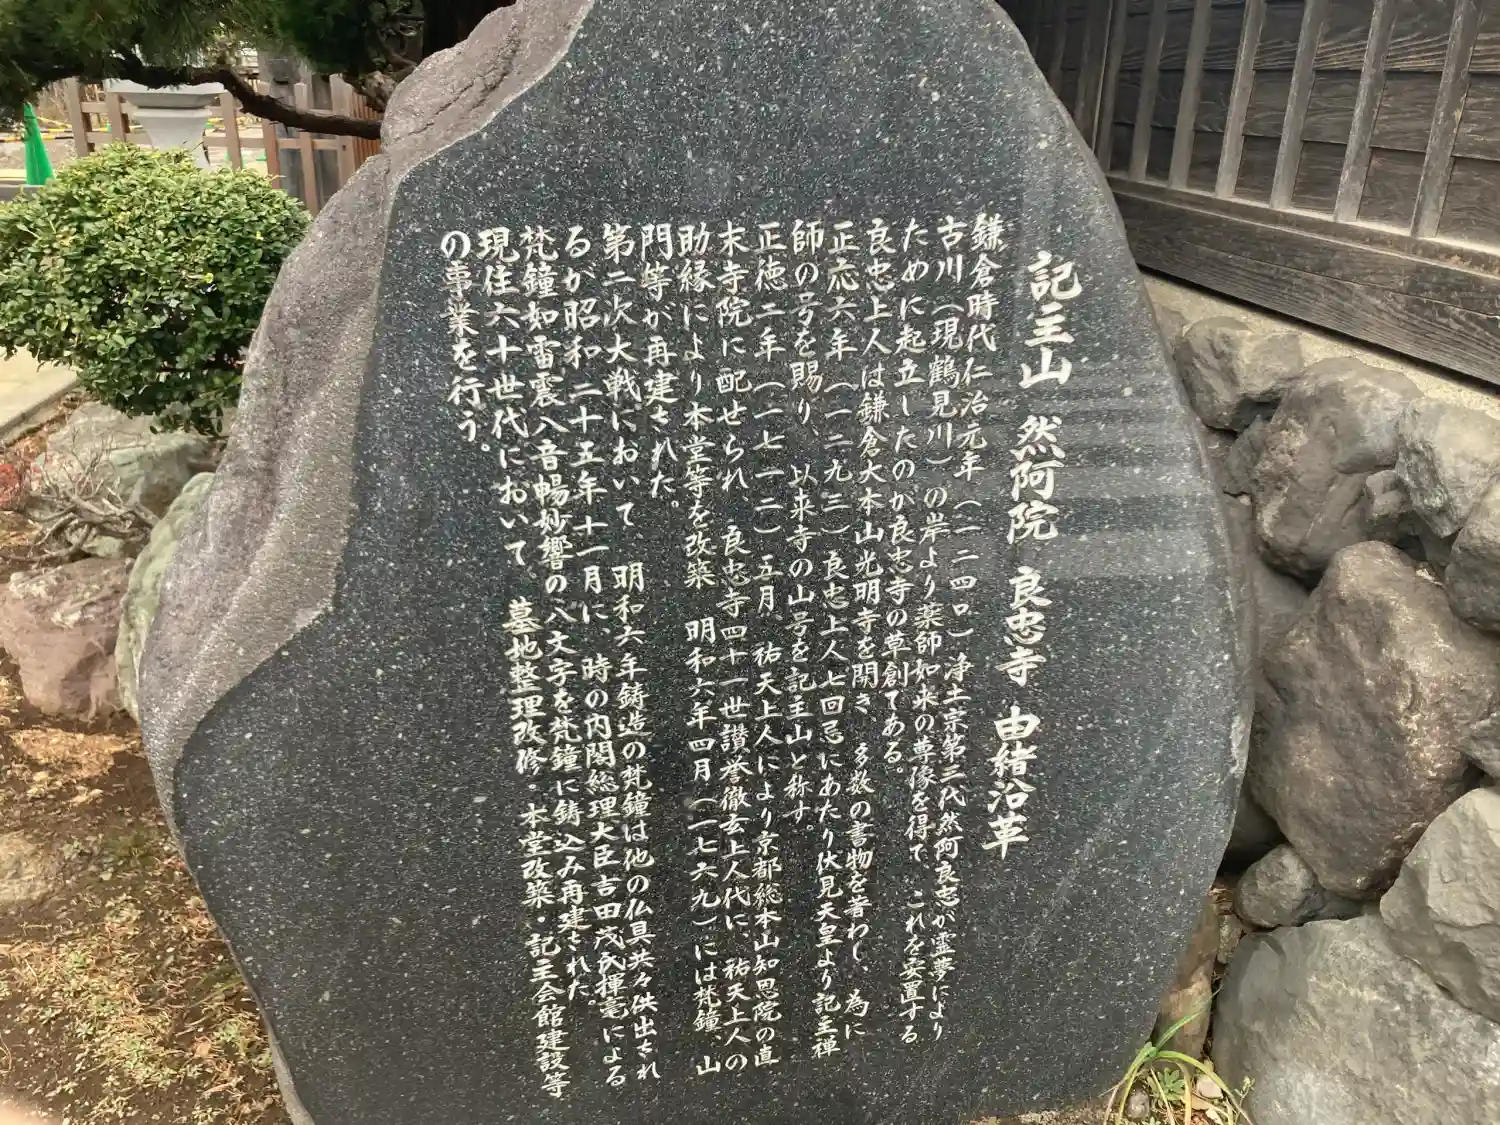 記主山 然阿院 良忠寺 由緒沿革
鎌倉時代仁治元年(一二四〇)浄土宗第三代然阿良忠が霊夢により
古川(現鶴見川)の岸より薬師如来の尊像を得て、これを安置する
ために起立したのが良忠寺の草創である。
良忠上人は鎌倉大本山光明寺を開き、多数の書物を著わし、為に
正応六年(一二九三)良忠上人七回忌にあたり伏見天皇より記主禅
師の号を賜り、以来寺の山号を記主山と称す。
正徳二年(一七一二)五月、祐天上人により京都総本山知恩院の直
末寺院に配せられ、良忠寺四十一世讃誉徹玄上人代に、祐天上人の
助縁により本堂等を改築 明和六年四月(一七六九)には梵鐘、山
門等が再建された。
第二次大戦において 明和六年鋳造の梵鐘は他の仏具共々供出され
るが昭和二十五年十一月に、時の内閣総理大臣吉田茂氏揮毫による
梵鐘如雷震八音暢妙響の八文字を梵鐘に鋳込み再建された。
現住六十世代において、墓地整理改修・本堂改築・記主会館建設等
の事業を行う。